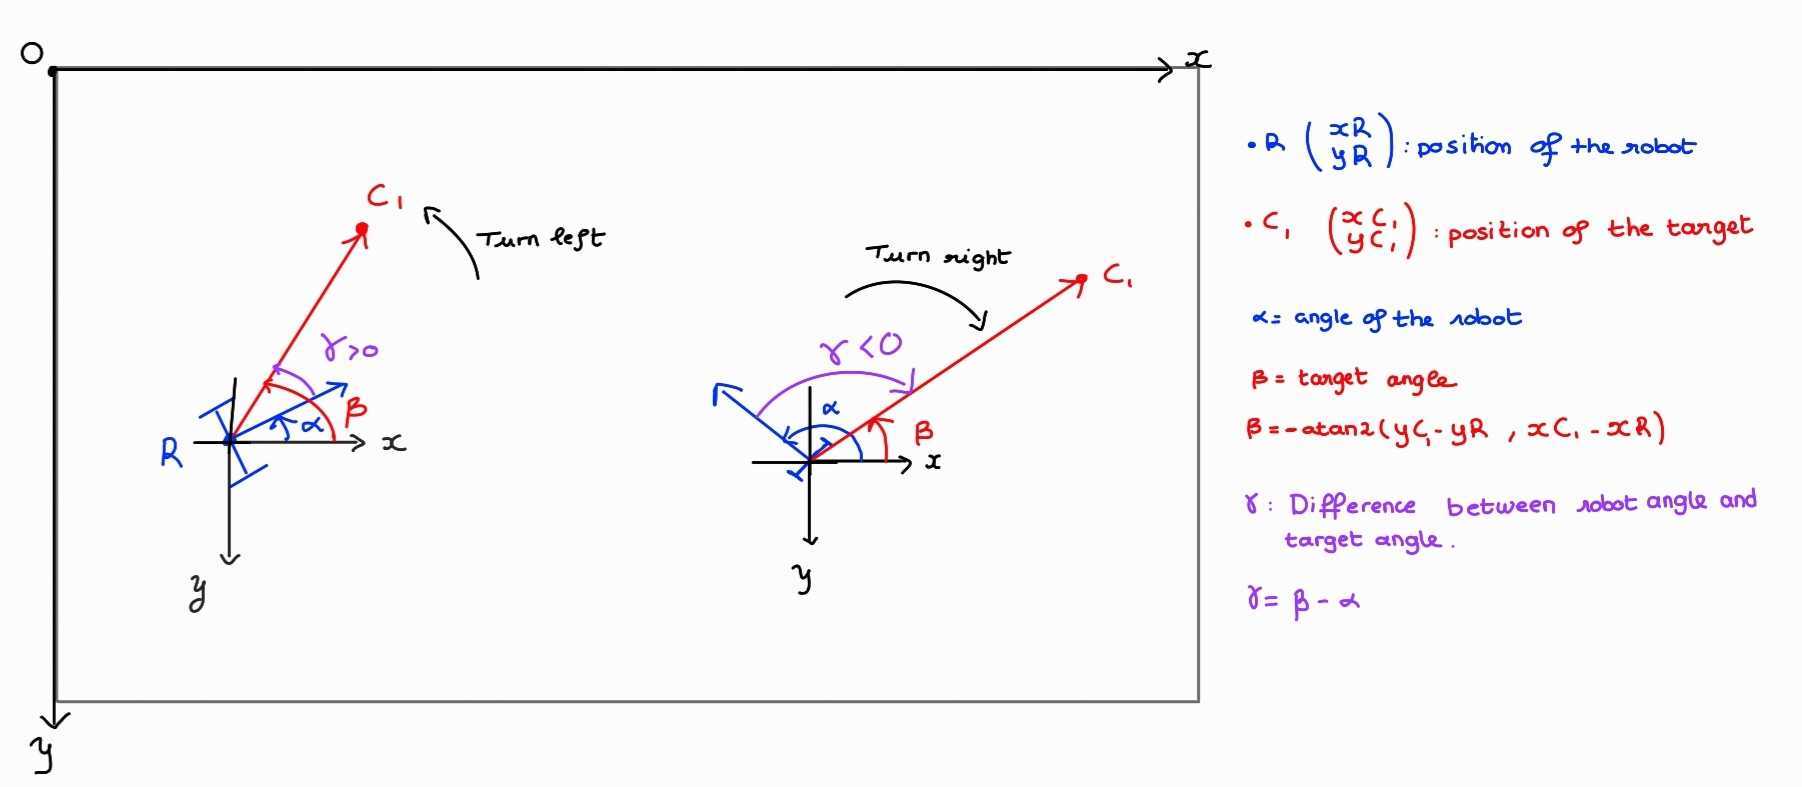 O
x
y
C₁
Turn left
γ>0
β
α
R
x
y
Turn right
C₁
γ<0
α
β
x
y
• R (xR yR) : position of the robot
• C₁ (xC₁ yC₁) : position of the target
α = angle of the robot
β = target angle
β = -atan2(yC₁ - yR , xC₁ - xR)
γ : Difference between robot angle and
target angle.
γ = β - α